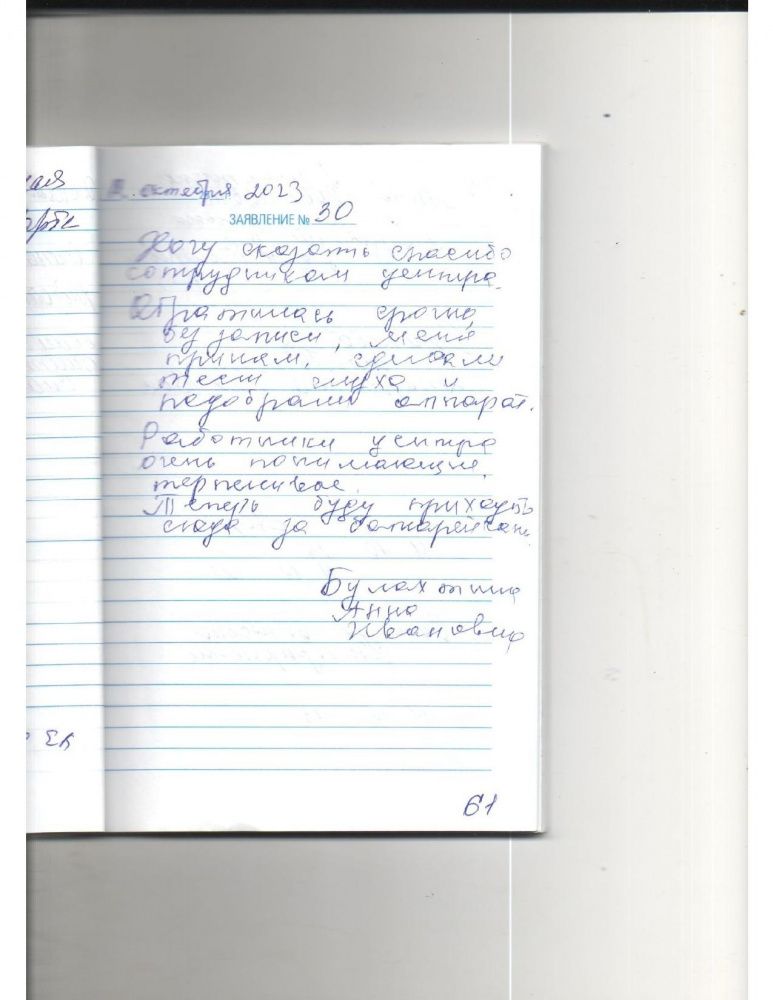 ная
октября 2023
ЗАЯВЛЕНИЕ № 30
Хочу сказать спасибо
сотрудникам центра.
Обратилась срочно,
без записи, меня
приняли, сделали
тест слуха и
подобрали аппарат.
Работники центра
очень понимающие,
терпеливые.
Теперь буду приходить
сюда за батарейками.
Булахтина
Анна
Ивановна
61